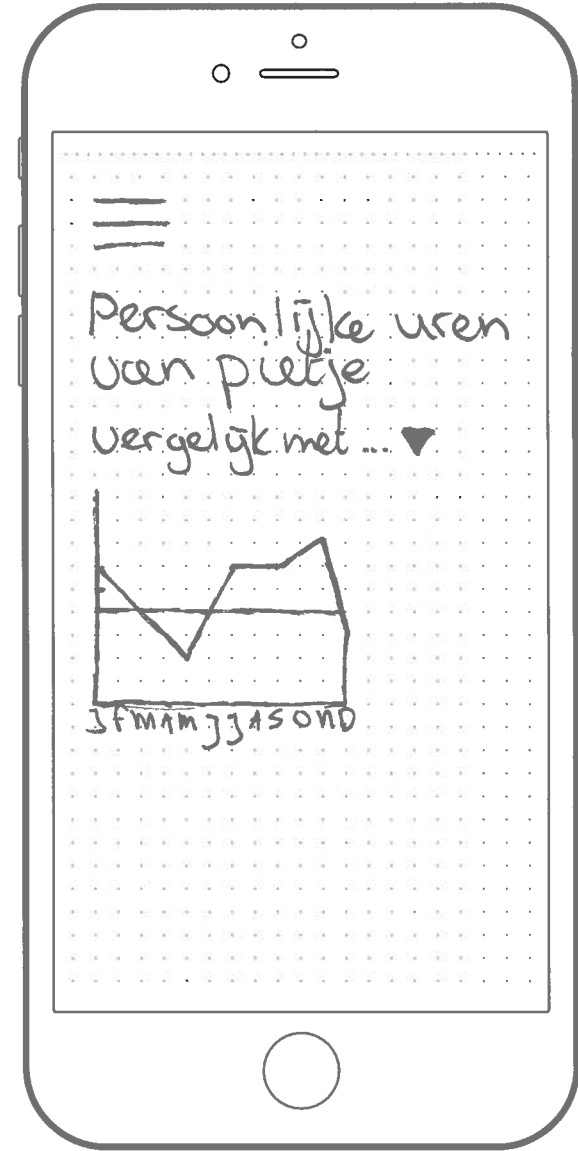 Persoonlijke uren
van pietje
vergelijk met ...
J F M A M J J A S O N D